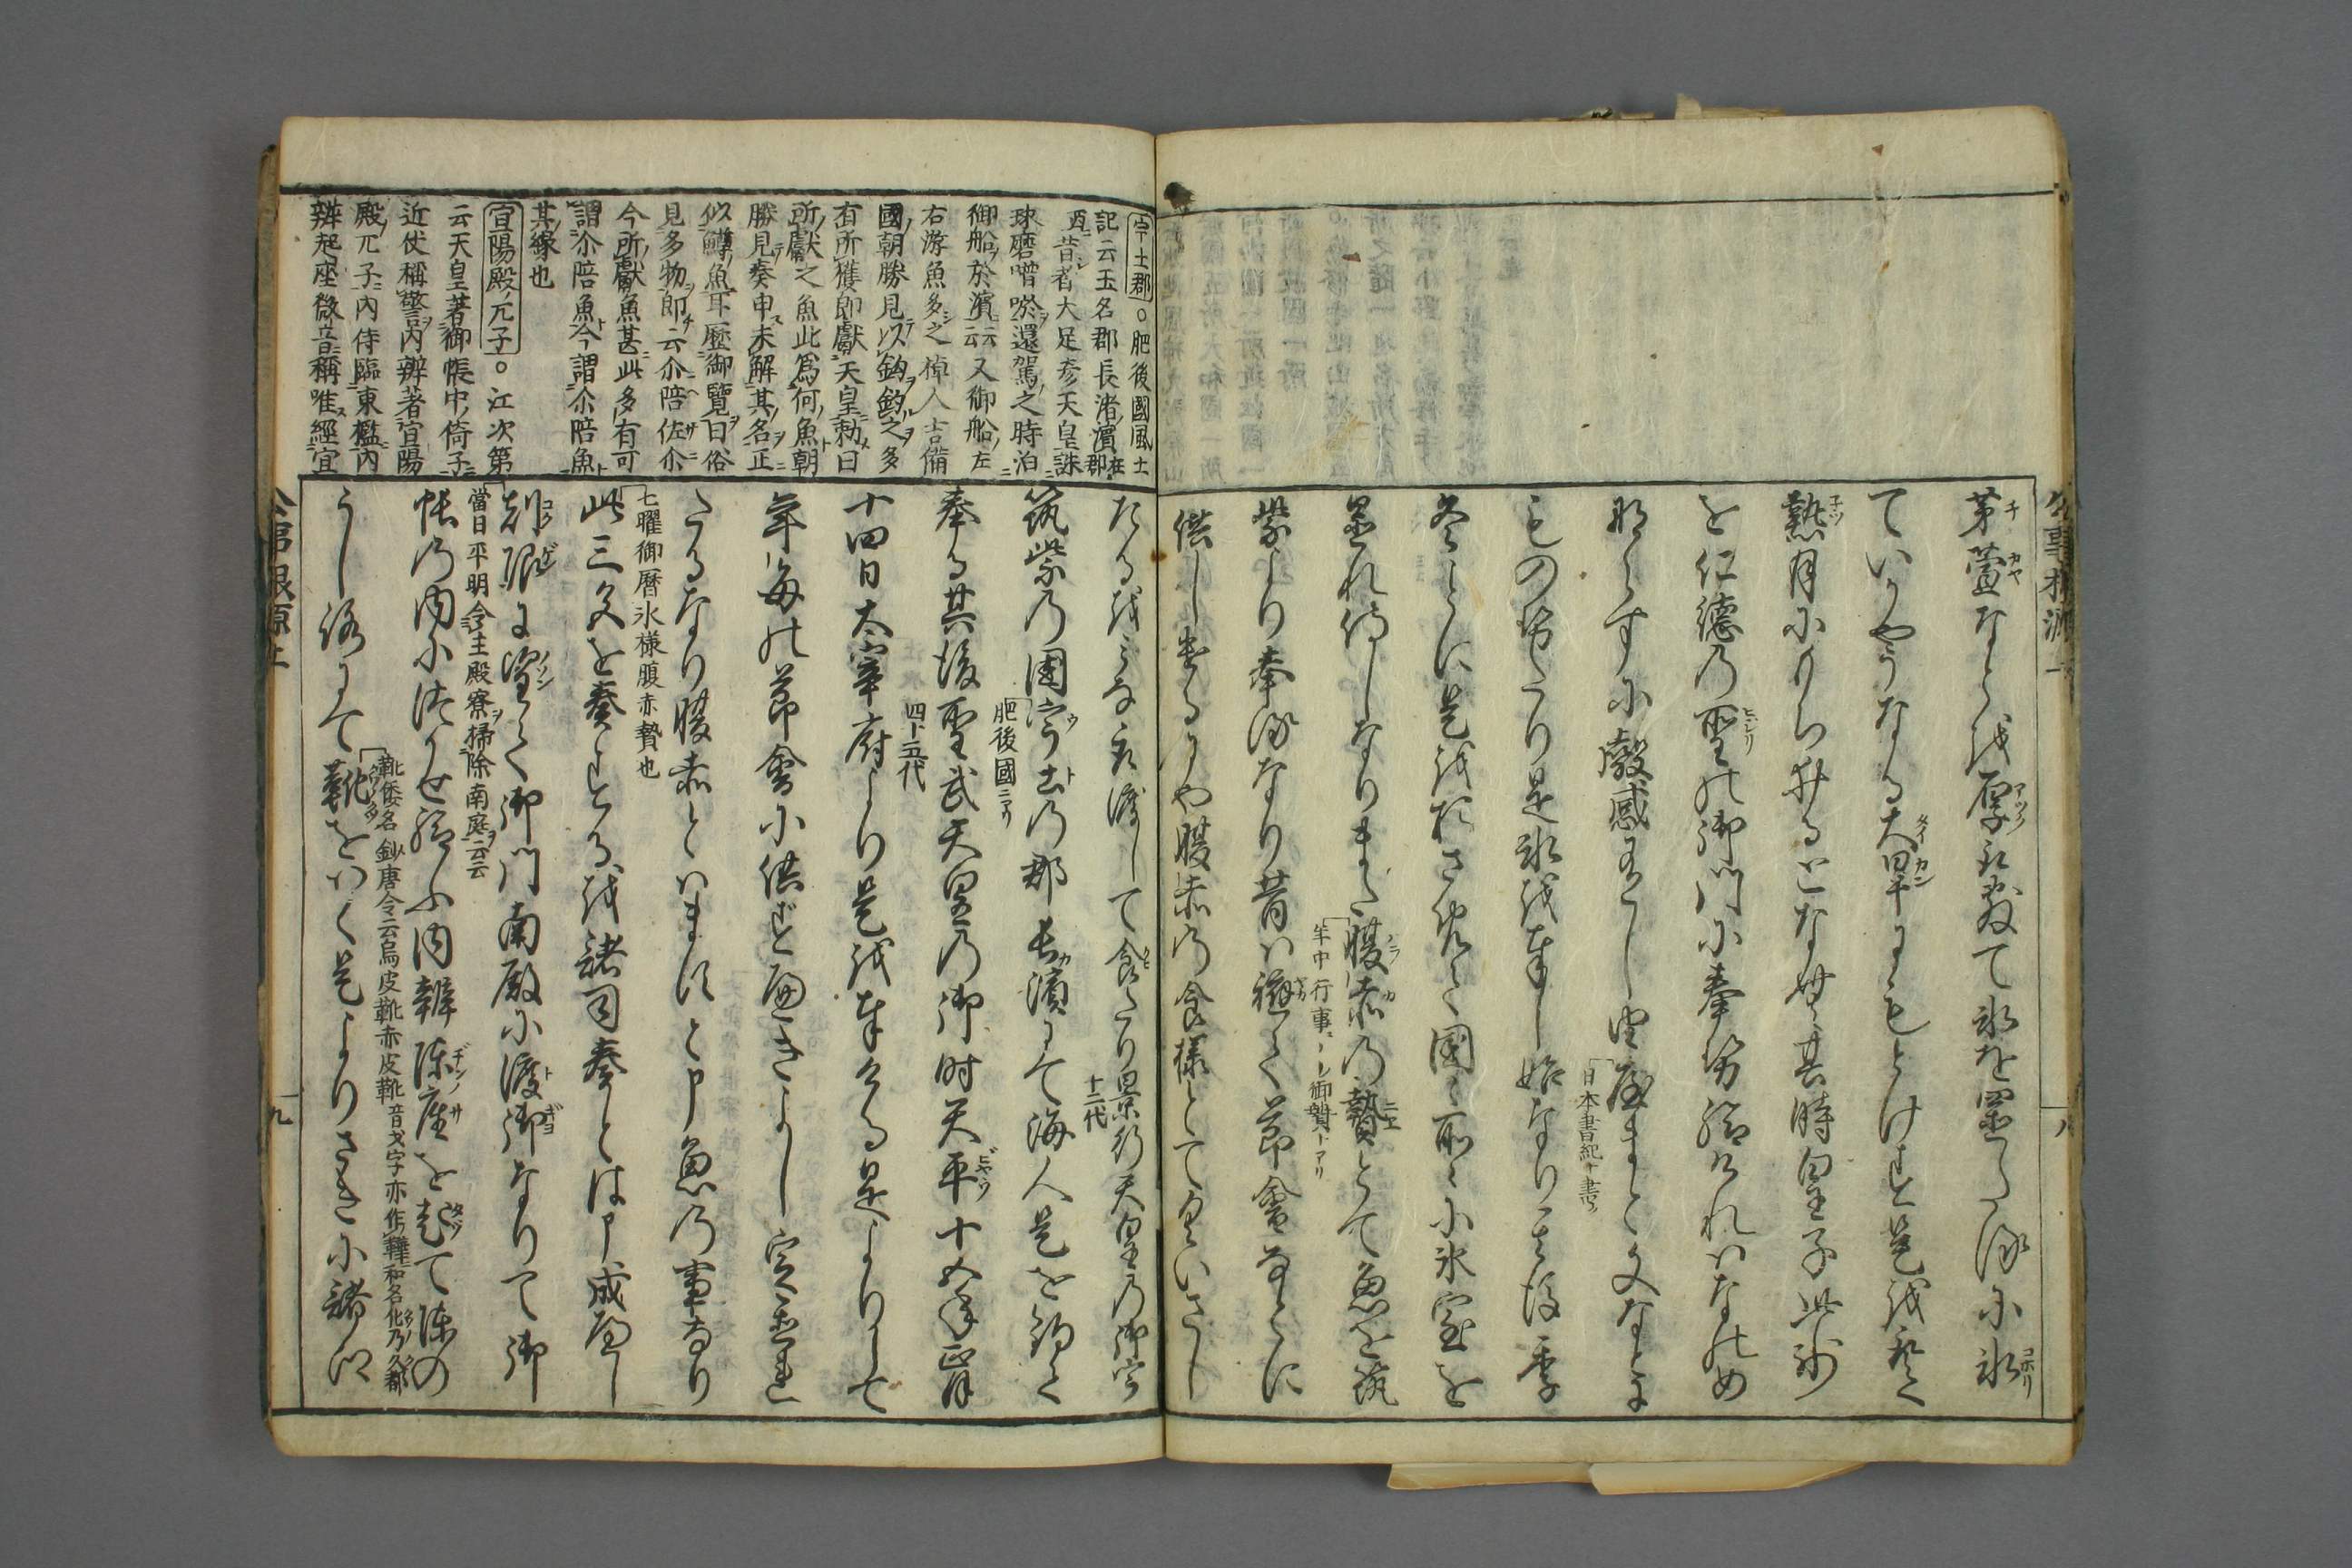 公事根源
八
茅萱なとを厚く敷て氷を置たるに氷
ていかやうなる大旱にもとけす是を取て
熱月にもち升るとなむ其時皇子此氷
を仁徳の聖の御門に奉らせ給けれはなのめ
ならすに叡感有し
日本書紀ニ書ク
もの
冬ことに是をおさめて国々所々に氷室を
置れ侍しなりまた腹赤の贄とて魚を筑
年中行事ニハ御贄トアリ
紫より奉るなり昔は節會なとに
供しけるにや腹赤の食様とてくひさし
たるをみな取渡して食けり景行天皇の御宇
十二代
筑紫の國宇土の郡長濱にて海人是を釣て
肥後國ニアリ
奉る其後聖武天皇の御時天平十五年正月
四十五代
十四日太宰府より是を奉る是よりして
年毎の節會に供すへきよし定置れ
たるなり腹赤といますと申魚の事なり
七曜御暦氷様腹赤贄也
此三色を奏するを諸司奏とは申成へし
刻限に望て御門南殿に渡御なりて御
當日平明令主殿寮掃除南庭云云
帳の内につかせ給ふ内辨陣座を起て陣の
うしろにて靴をはく是よりさきに諸
靴倭名鈔唐令云烏皮靴赤皮靴音戈字亦作鞾和名化乃久都
宇土郡○肥後國風土
記云玉名郡長渚濱在郡
西昔者大足彦天皇誅
球磨噌唹還駕之時泊
御船於濱云云又御船左
右游魚多之棹人吉備
國朝勝見以鈎釣之多
有所獲即獻天皇勅曰
所獻之魚此為何魚朝
勝見奏申未解其名正
似鱒魚耳歴御覧曰俗
見多物即云尒陪佐尒
今所獻魚甚此多有可
謂尒陪魚今謂尒陪魚
其縁也
宜陽殿ノ兀子○江次第
云天皇著御帳中倚子
近仗稱警内辨著宜陽
殿兀子内侍臨東檻内
辨起座微音稱唯經宜
公事根源上
九